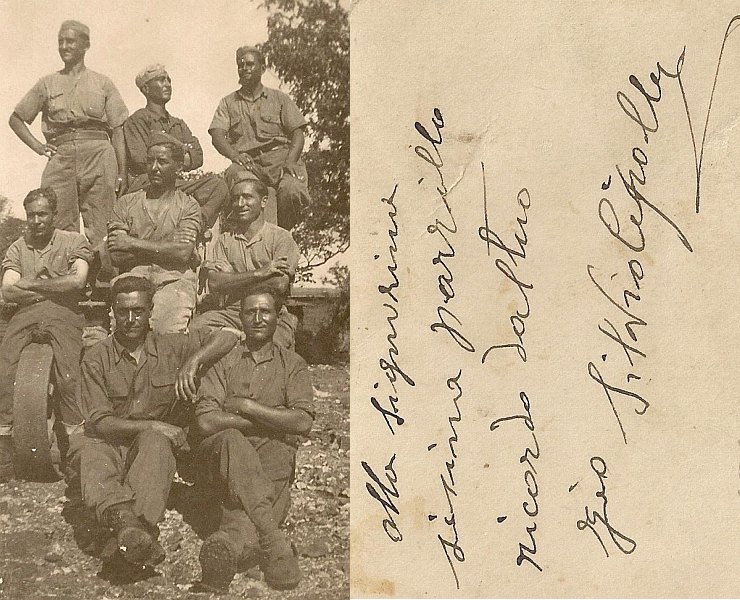 alla signorina
sisina parrillo
ricordo dal tuo
zio Silvio Cipolla